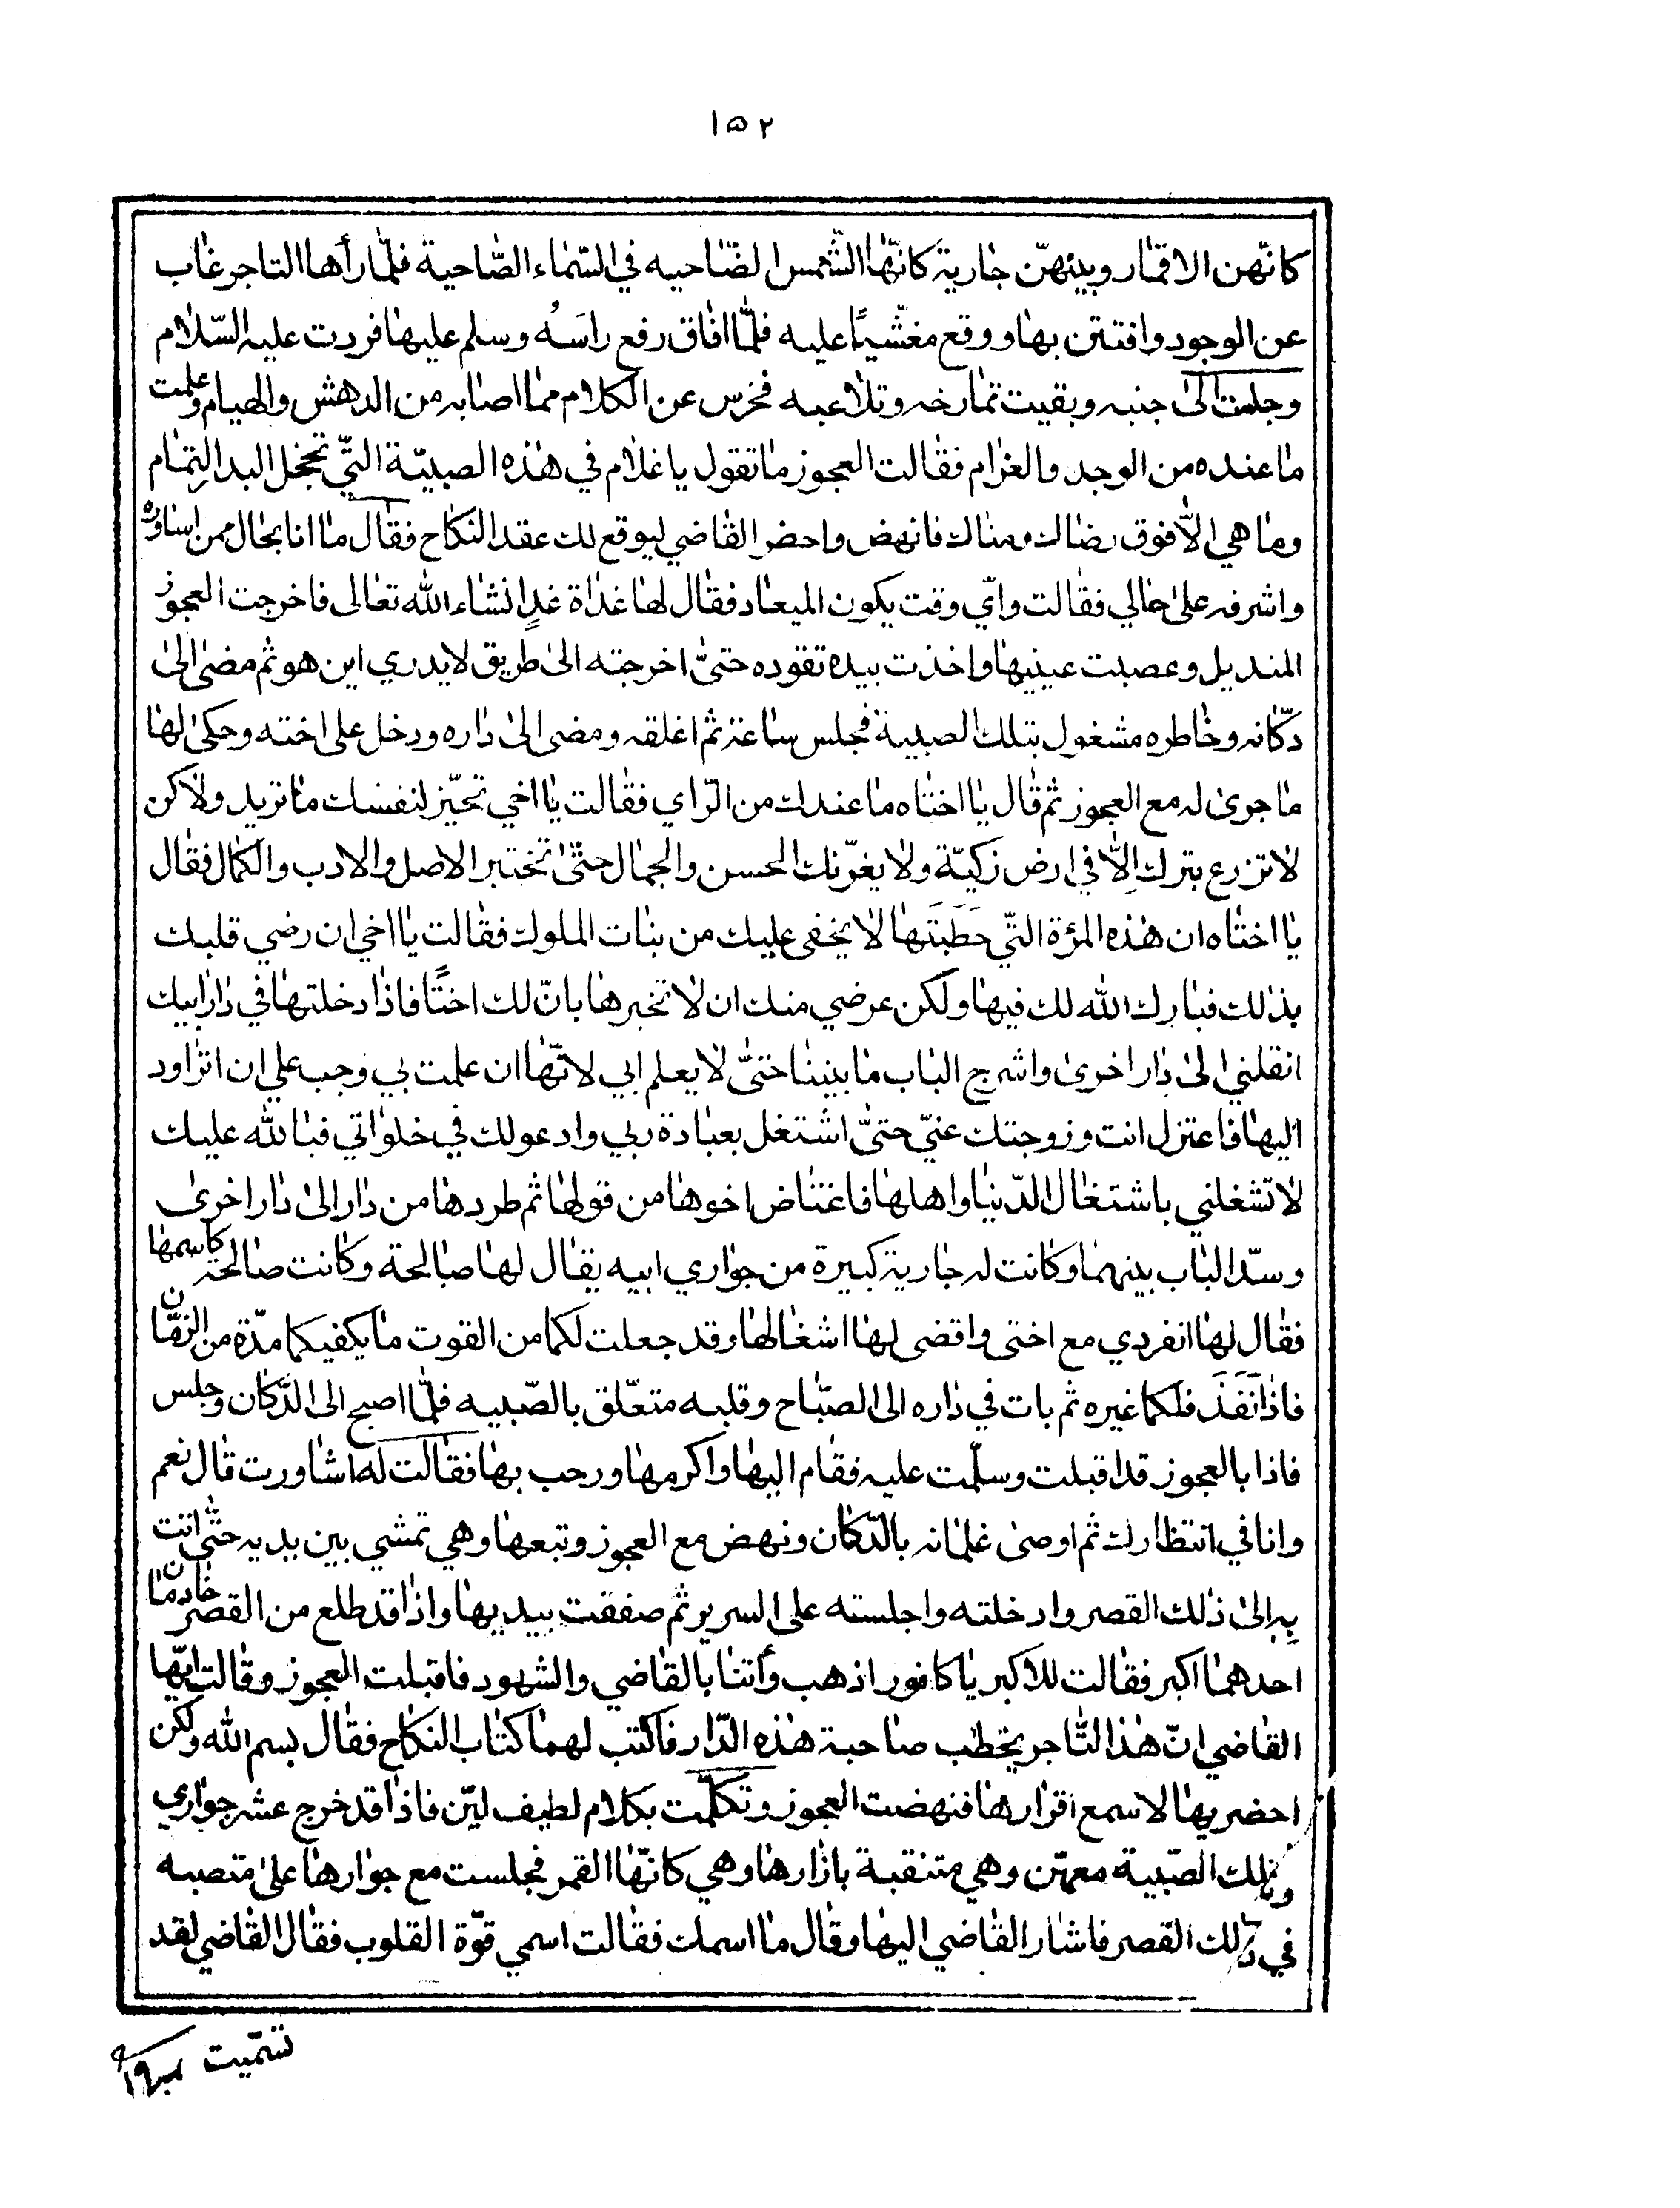 ١٥٢
كانّهن الاقمار وبينهنّ جارية كانّها الشّمس الضّاحيه في السّماء الصّاحية فلمّا رأها التاجر غاب
عن الوجود وافتتن بها ووقع مغشّيًا عليه فلمّا افاق رفع راسَهُ وسلم عليها فردت عليه السّلام
وجلست الى جنبه وبقيت تمازحه وتلاعبه فخرس عن الكلام مما اصابه من الدهش والهيام وعلمت
ما عنده من الوجد والغرام فقالت العجوز ما تقول يا غلام في هذه الصبيّة التّي تخجل البدر التمام
وما هي الاّ فوق رضاك ومناك فانهض واحضر القاضي ليوقع لك عقد النكاح فقال ما انا بخال ممن اساوره
واشرفه على حالي فقالت وايّ وقت يكون الميعاد فقال لها غداة غدٍ انشاء الله تعالى فاخرجت العجوز
المنديل وعصبت عينيها واخذت بيده تقوده حتىّ اخرجته الى طريق لا يدري اين هو ثم مضى الى
دكّانه وخاطره مشغول بتلك الصبية فجلس ساعة ثم اغلقه ومضى الى داره ودخل على اخته وحكى لها
ما جرى له مع العجوز ثم قال يا اختاه ما عندك من الرّاي فقالت يا اخي تخيّز لنفسك ما تريد ولاكن
لا تزرع بترك الاّ في ارض زكيّة ولا يغرّنك الحسن والجمال حتّى تختبر الاصل والادب والكمال فقال
يا اختاه ان هذه المرؤة التّي خَطَبَتَها لا يخفى عليك من بنات الملوك فقالت يا اخي ان رضي قلبك
بذلك فبارك الله لك فيها ولكن عرضي منك ان لا تخبرها بانّ لك اختًا فاذا دخلتها في دار ابيك
انقلني الى دار اخرى واشرج الباب ما بيننا حتىّ لا يعلم ابي لانّها ان علمت بي وجب علي ان اتراود
اليها فاعتزل انت وزوجتك عنيّ حتىّ اشتغل بعبادة ربي وادعو لك في خلواتي فبالله عليك
لا تشغلني باشتغال الدّنيا واهلها فاغتاض اخوها من قولها ثم طردها من دار الى دار اخرى
وسدّ الباب بينهما وكانت له جارية كبيرة من جواري ابيه يقال لها صالحة وكانت صالحة كاسمها
فقال لها انفردي مع اختى واقضى لها اشغالها وقد جعلت لكما من القوت ما يكفيكما مدّة من الزمّان
فاذا نَفَذَ فلكما غيره ثم بات في داره الى الصّباح وقلبه متعّلق بالصّبيه فلمّا اصبح الى الدّكان وجلس
فاذا بالعجوز قد اقبلت وسلّمت عليه فقام اليها واكرمها ورحب بها فقالت له اشاورت قال نعم
وانا في انتظارك ثم اوصى غلمانه بالدّكان ونهض مع العجوز وتبعها وهي تمشي بين يديه حتّى اتت
بِه الى ذلك القصر وادخلته واجلسته على السرير ثم صفقت بيديها واذا قد طلع من القصر خادمان
احدهما اكبر فقالت للاكبر يا كافور اذهب وأتنا بالقاضي والشهود فاقبلت العجوز وقالت ايّها
القاضي انّ هذا التّاجر يخطب صاحبة هذه الدّار فاكتب لهما كتاب النكاح فقال بسم الله ولكن
احضريها لاسمع اقرارها فنهضت العجوز وتكلّمت بكلام لطيف ليّن فاذا قد خرج عشر جواري
وتلك الصّبية معهّن وهي متنقبة بازارها وهي كانّها القمر فجلست مع جوارها على متصبه
في ذلك القصر فاشار القاضي اليها وقال ما اسمك فقالت اسمي قوّة القلوب فقال القاضي لقد
تسّميت